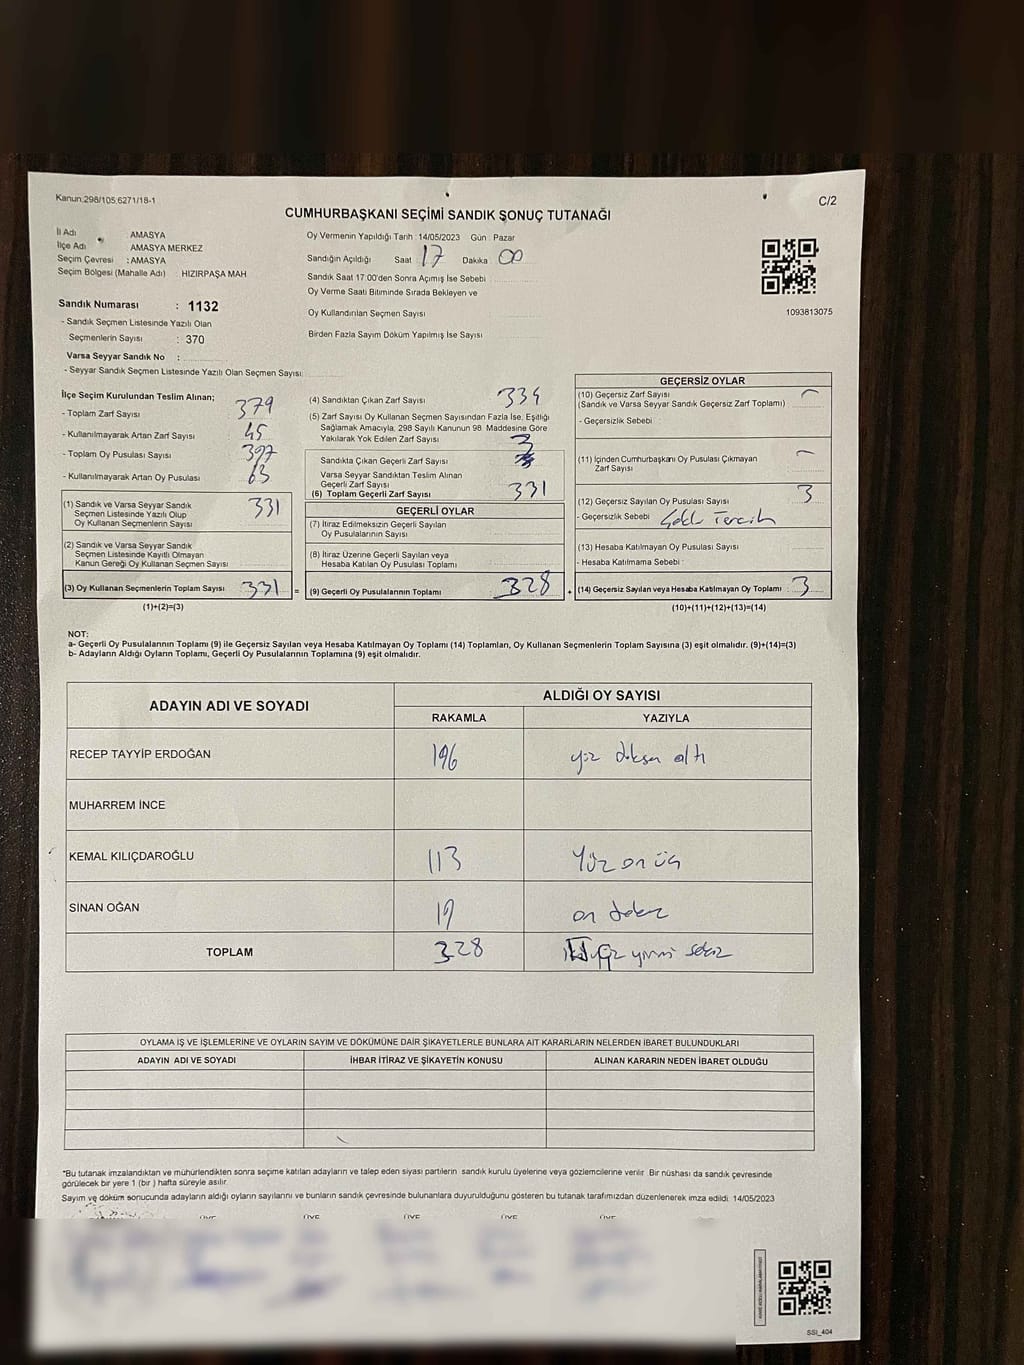 Kanun:298/105,6271/18-1
C/2
CUMHURBAŞKANI SEÇİMİ SANDIK SONUÇ TUTANAĞI
İl Adı AMASYA
İlçe Adı AMASYA MERKEZ
Seçim Çevresi : AMASYA
Seçim Bölgesi (Mahalle Adı) : HIZIRPAŞA MAH
Sandık Numarası : 1132
- Sandık Seçmen Listesinde Yazılı Olan
Seçmenlerin Sayısı : 370
Varsa Seyyar Sandık No :
- Seyyar Sandık Seçmen Listesinde Yazılı Olan Seçmen Sayısı:
Oy Vermenin Yapıldığı Tarih :14/05/2023 Gün : Pazar
Sandığın Açıldığı Saat 17 Dakika 00
Sandık Saat 17:00'den Sonra Açımış İse Sebebi
Oy Verme Saati Bitiminde Sırada Bekleyen ve
Oy Kullandırılan Seçmen Sayısı
Birden Fazla Sayım Döküm Yapılmış İse Sayısı
1093813075
İlçe Seçim Kurulundan Teslim Alınan;
- Toplam Zarf Sayısı 379
- Kullanılmayarak Artan Zarf Sayısı 45
- Toplam Oy Pusulası Sayısı 397
- Kullanılmayarak Artan Oy Pusulası 63
(1) Sandık ve Varsa Seyyar Sandık
Seçmen Listesinde Yazılı Olup
Oy Kullanan Seçmenlerin Sayısı 331
(2) Sandık ve Varsa Seyyar Sandık
Seçmen Listesinde Kayıtlı Olmayan
Kanun Gereği Oy Kullanan Seçmen Sayısı
(3) Oy Kullanan Seçmenlerin Toplam Sayısı 331 =
(1)+(2)=(3)
(4) Sandıktan Çıkan Zarf Sayısı 334
(5) Zarf Sayısı Oy Kullanan Seçmen Sayısından Fazla İse, Eşitliği
Sağlamak Amacıyla, 298 Sayılı Kanunun 98. Maddesine Göre
Yakılarak Yok Edilen Zarf Sayısı 3
Sandıkta Çıkan Geçerli Zarf Sayısı
Varsa Seyyar Sandıktan Teslim Alınan
Geçerli Zarf Sayısı
(6) Toplam Geçerli Zarf Sayısı 331
GEÇERLİ OYLAR
(7) İtiraz Edilmeksizin Geçerli Sayılan
Oy Pusulalarının Sayısı
(8) İtiraz Üzerine Geçerli Sayılan veya
Hesaba Katılan Oy Pusulası Toplamı
(9) Geçerli Oy Pusulalarının Toplamı 328 +
GEÇERSİZ OYLAR
(10) Geçersiz Zarf Sayısı
(Sandık ve Varsa Seyyar Sandık Geçersiz Zarf Toplamı)
- Geçersizlik Sebebi :
(11) İçinden Cumhurbaşkanı Oy Pusulası Çıkmayan
Zarf Sayısı
(12) Geçersiz Sayılan Oy Pusulası Sayısı 3
- Geçersizlik Sebebi Tercih
(13) Hesaba Katılmayan Oy Pusulası Sayısı
- Hesaba Katılmama Sebebi :
(14) Geçersiz Sayılan veya Hesaba Katılmayan Oy Toplamı : 3
(10)+(11)+(12)+(13)=(14)
NOT:
a- Geçerli Oy Pusulalarının Toplamı (9) ile Geçersiz Sayılan veya Hesaba Katılmayan Oy Toplamı (14) Toplamları, Oy Kullanan Seçmenlerin Toplam Sayısına (3) eşit olmalıdır. (9)+(14)=(3)
b- Adayların Aldığı Oyların Toplamı, Geçerli Oy Pusulalarının Toplamına (9) eşit olmalıdır.
ADAYIN ADI VE SOYADI
ALDIĞI OY SAYISI
RAKAMLA YAZIYLA
RECEP TAYYİP ERDOĞAN 196 yüz doksan altı
MUHARREM İNCE
KEMAL KILIÇDAROĞLU 113 Yüz on üç
SİNAN OĞAN 19 on dokuz
TOPLAM 328 üç yüz yirmi sekiz
OYLAMA İŞ VE İŞLEMLERİNE VE OYLARIN SAYIM VE DÖKÜMÜNE DAİR ŞİKAYETLERLE BUNLARA AİT KARARLARIN NELERDEN İBARET BULUNDUKLARI
ADAYIN ADI VE SOYADI İHBAR İTİRAZ VE ŞİKAYETİN KONUSU ALINAN KARARIN NEDEN İBARET OLDUĞU
*Bu tutanak imzalandıktan ve mühürlendikten sonra seçime katılan adayların ve talep eden siyasi partilerin sandık kurulu üyelerine veya gözlemcilerine verilir. Bir nüshası da sandık çevresinde
görülecek bir yere 1 (bir ) hafta süreyle asılır.
Sayım ve döküm sonucunda adayların aldığı oyların sayılarını ve bunların sandık çevresinde bulunanlara duyurulduğunu gösteren bu tutanak tarafımızdan düzenlenerek imza edildi. 14/05/2023
ÜYE ÜYE ÜYE ÜYE ÜYE
SSI_404